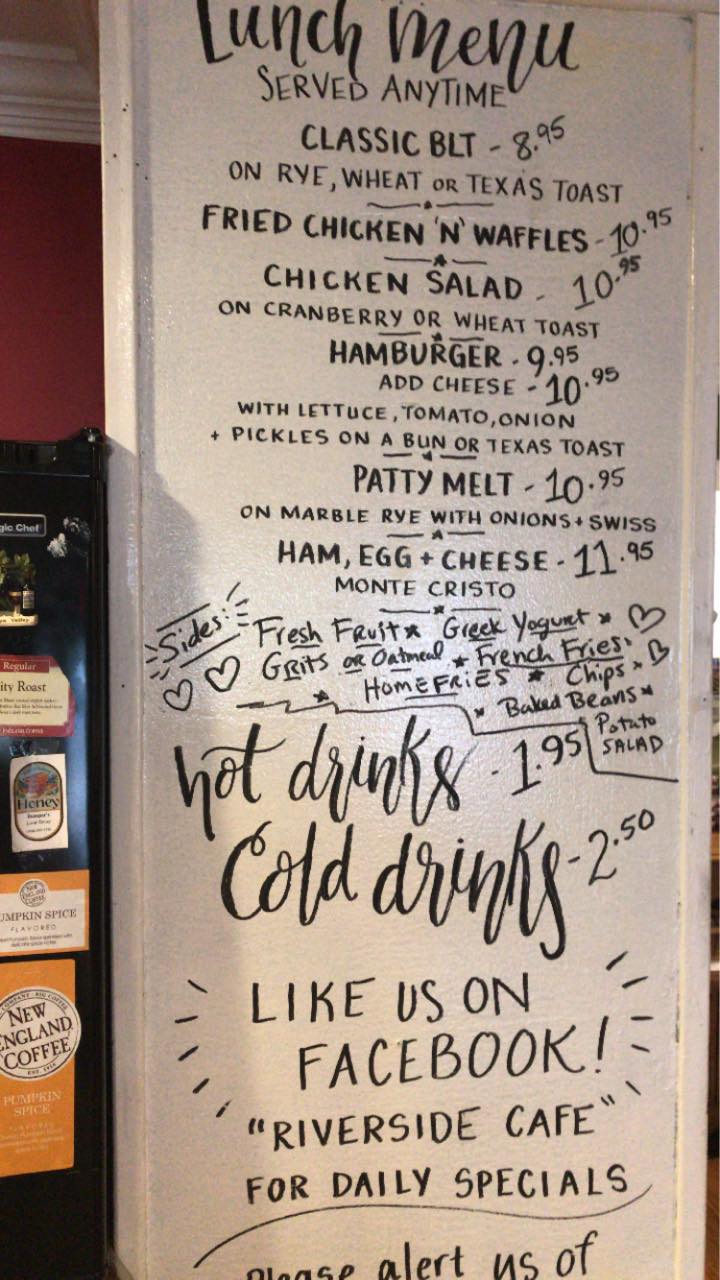 Lunch menu
SERVED ANYTIME
CLASSIC BLT - 8.95
ON RYE, WHEAT OR TEXAS TOAST
FRIED CHICKEN 'N' WAFFLES - 10.95
CHICKEN SALAD - 10.95
ON CRANBERRY OR WHEAT TOAST
HAMBURGER - 9.95
ADD CHEESE - 10.95
WITH LETTUCE, TOMATO, ONION
+ PICKLES ON A BUN OR TEXAS TOAST
PATTY MELT - 10.95
ON MARBLE RYE WITH ONIONS + SWISS
HAM, EGG + CHEESE - 11.95
MONTE CRISTO
Sides:
Fresh Fruit * Greek Yogurt *
GRITS OR Oatmeal * French Fries *
HOMEFRIES * Chips *
* Baked Beans *
Potato
SALAD
hot drinks - 1.95
Cold drinks - 2.50
LIKE US ON
FACEBOOK!
"RIVERSIDE CAFE"
FOR DAILY SPECIALS
Please alert us of
gic Chef
Regular
ity Roast
Honey
NEW ENGLAND COFFEE
UMPKIN SPICE
FLAVORED
NEW
ENGLAND
COFFEE
PUMPKIN
SPICE